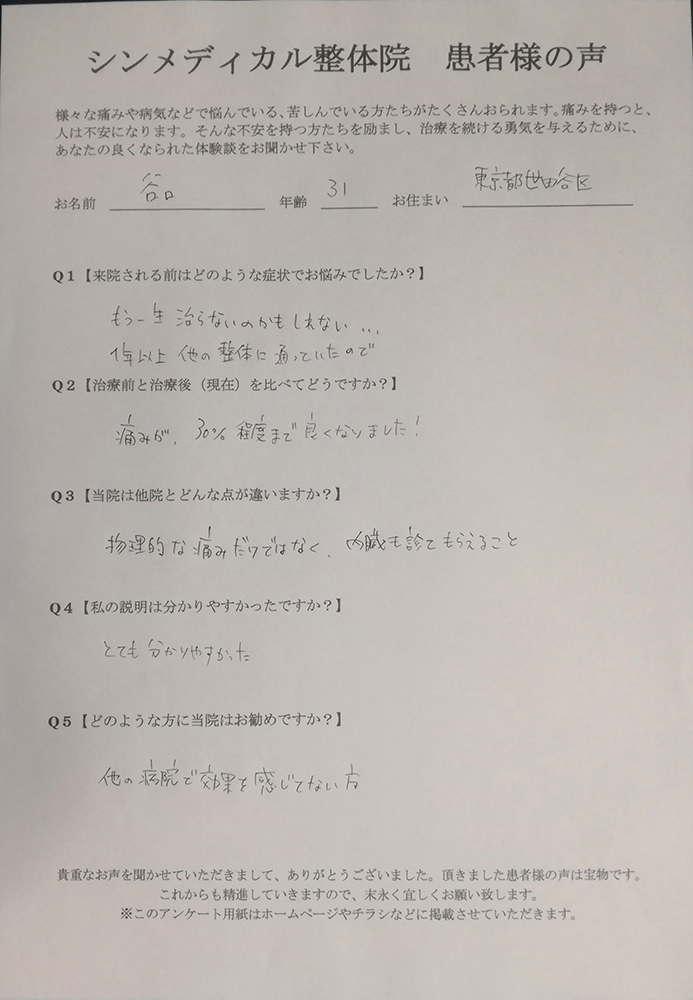 シンメディカル整体院 患者様の声
様々な痛みや病気などで悩んでいる、苦しんでいる方たちがたくさんおられます。痛みを持つと、
人は不安になります。そんな不安を持つ方たちを励まし、治療を続ける勇気を与えるために、
あなたの良くなられた体験談をお聞かせ下さい。
お名前 谷口 年齢 31 お住まい 東京都世田谷区
Q1【来院される前はどのような症状でお悩みでしたか？】
もう一生治らないのかもしれない...
1年以上他の整体に通っていたので
Q2【治療前と治療後（現在）を比べてどうですか？】
痛みが、30%程度まで良くなりました！
Q3【当院は他院とどんな点が違いますか？】
物理的な痛みだけではなく、内臓も診てもらえること
Q4【私の説明は分かりやすかったですか？】
とても分かりやすかった
Q5【どのような方に当院はお勧めですか？】
他の病院で効果を感じてない方
貴重なお声を聞かせていただきまして、ありがとうございました。頂きました患者様の声は宝物です。
これからも精進していきますので、末永く宜しくお願い致します。
※このアンケート用紙はホームページやチラシなどに掲載させていただきます。